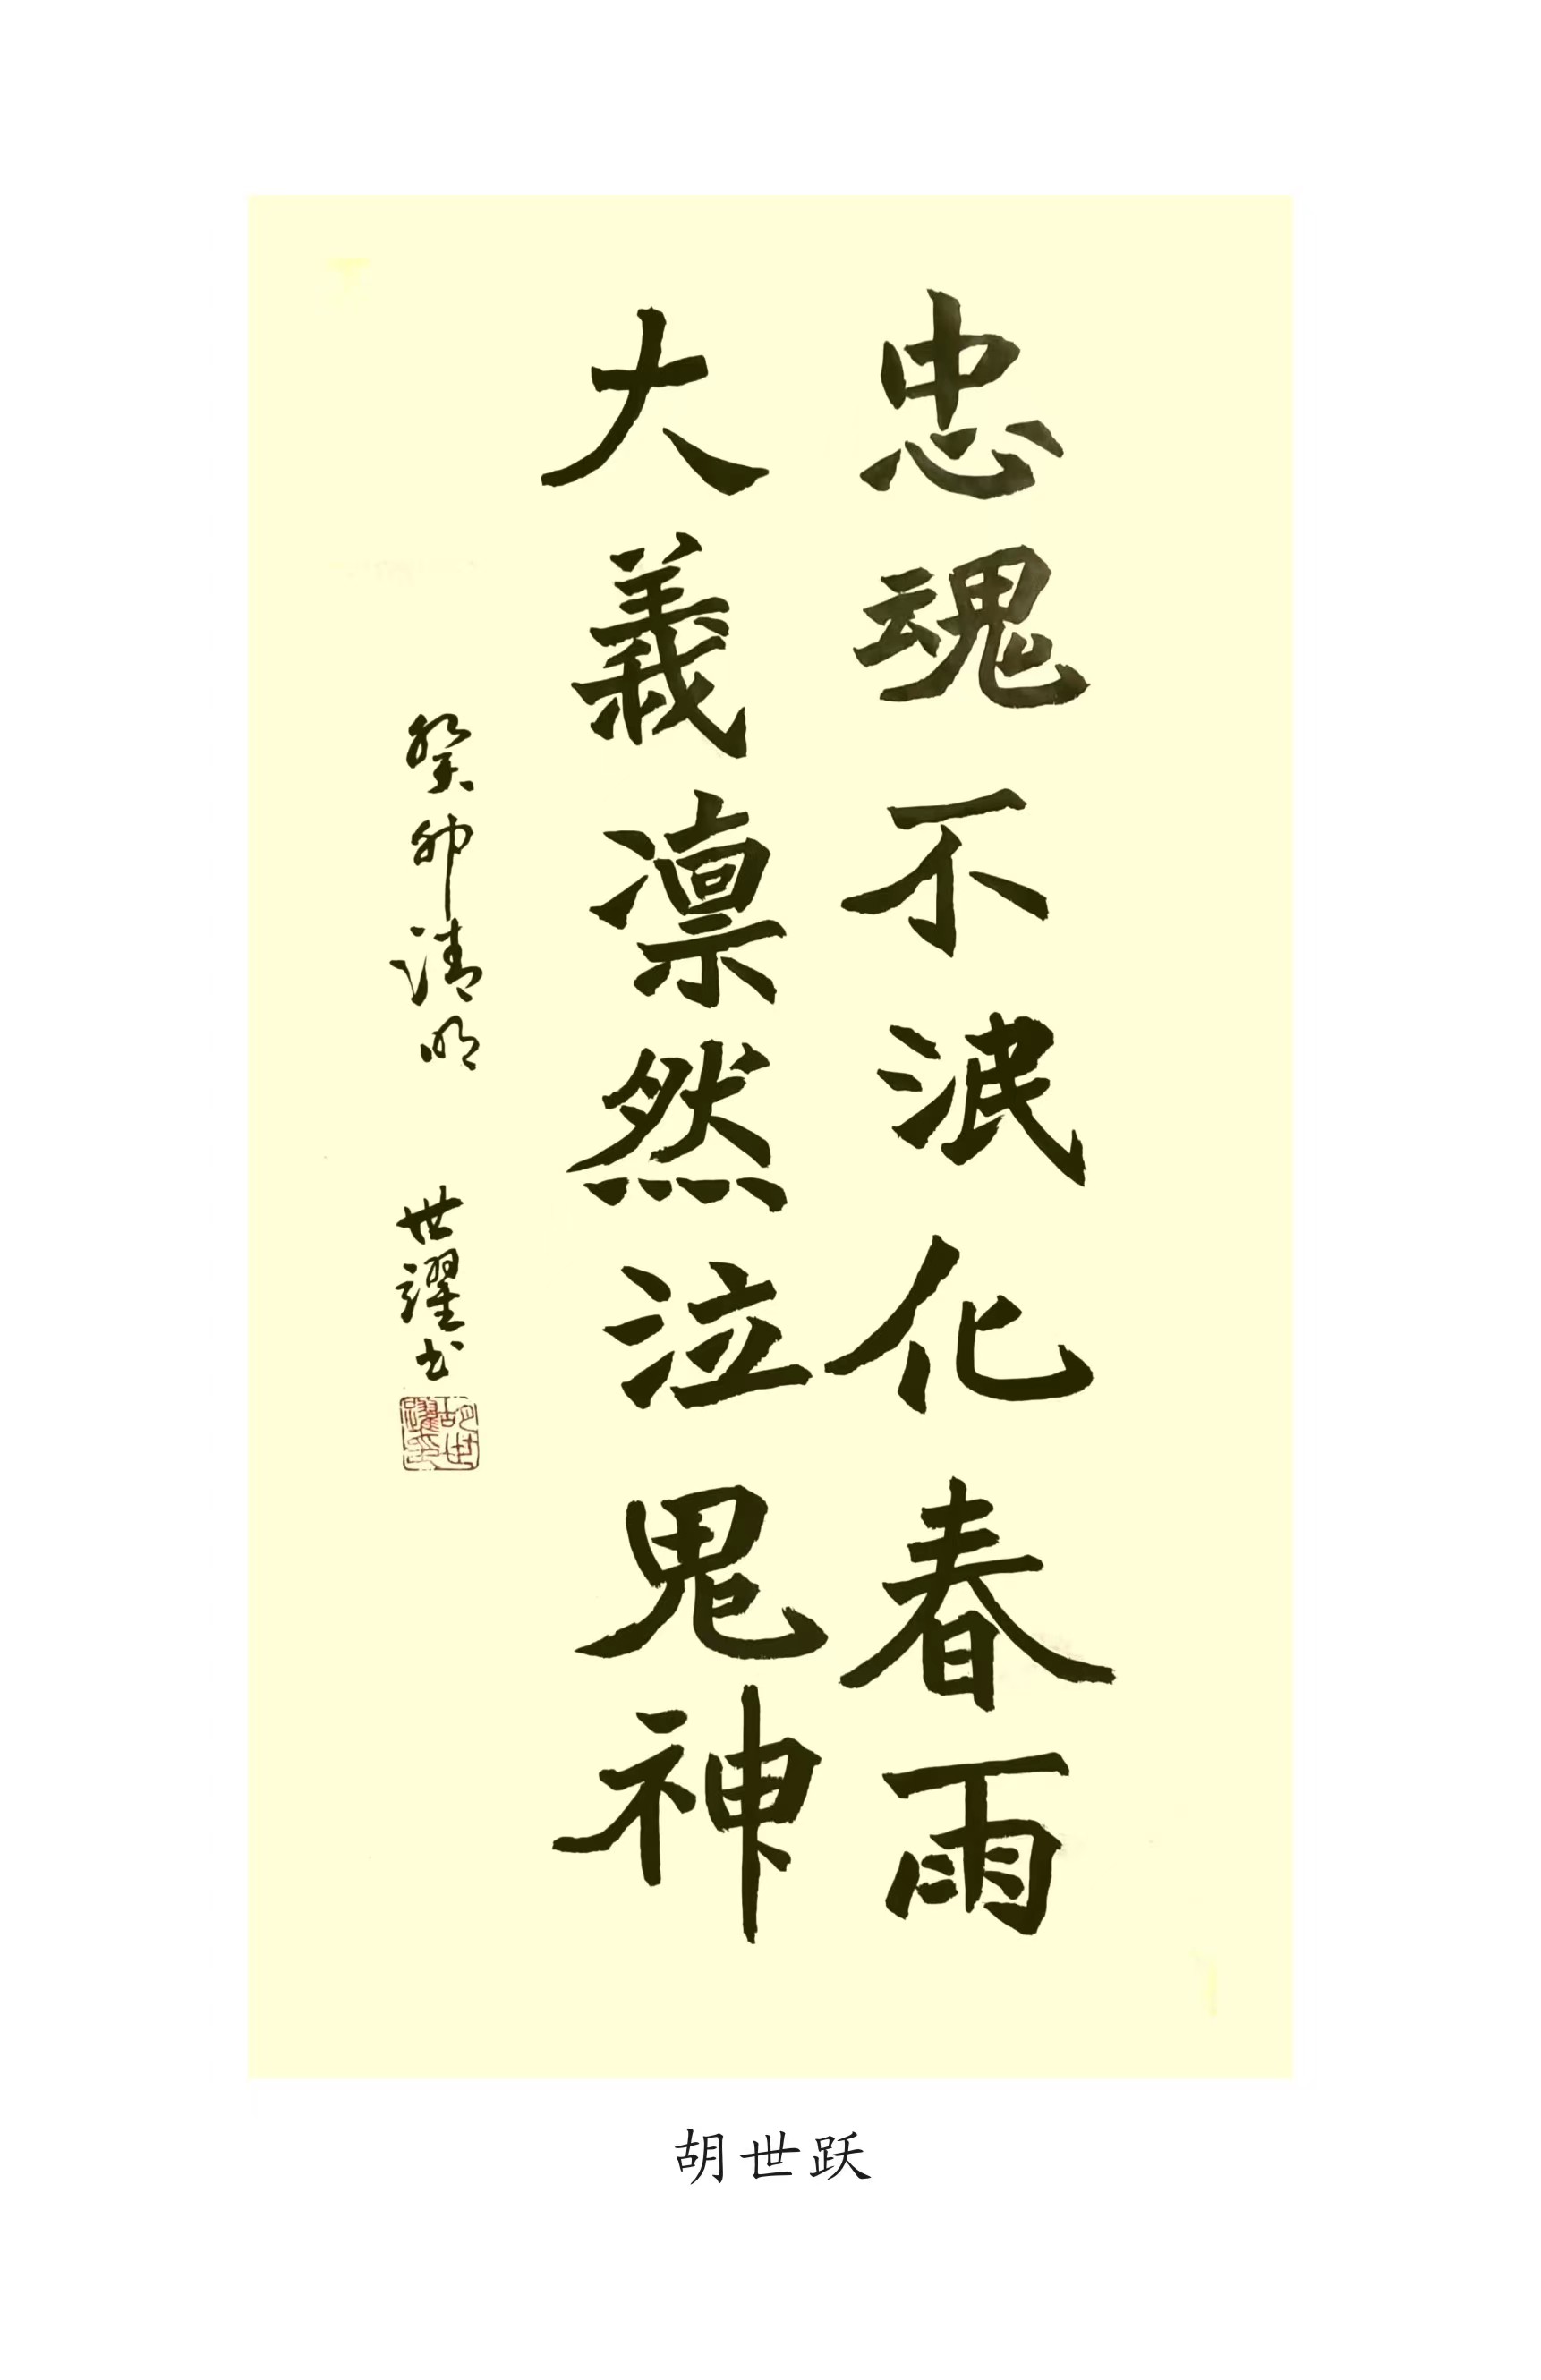 忠魂不泯化春雨
大義凛然泣鬼神
癸卯清明 世躍书
胡世躍印
胡世跃